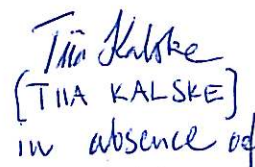 Tiia Kalske
[TIIA KALSKE]
in absence of